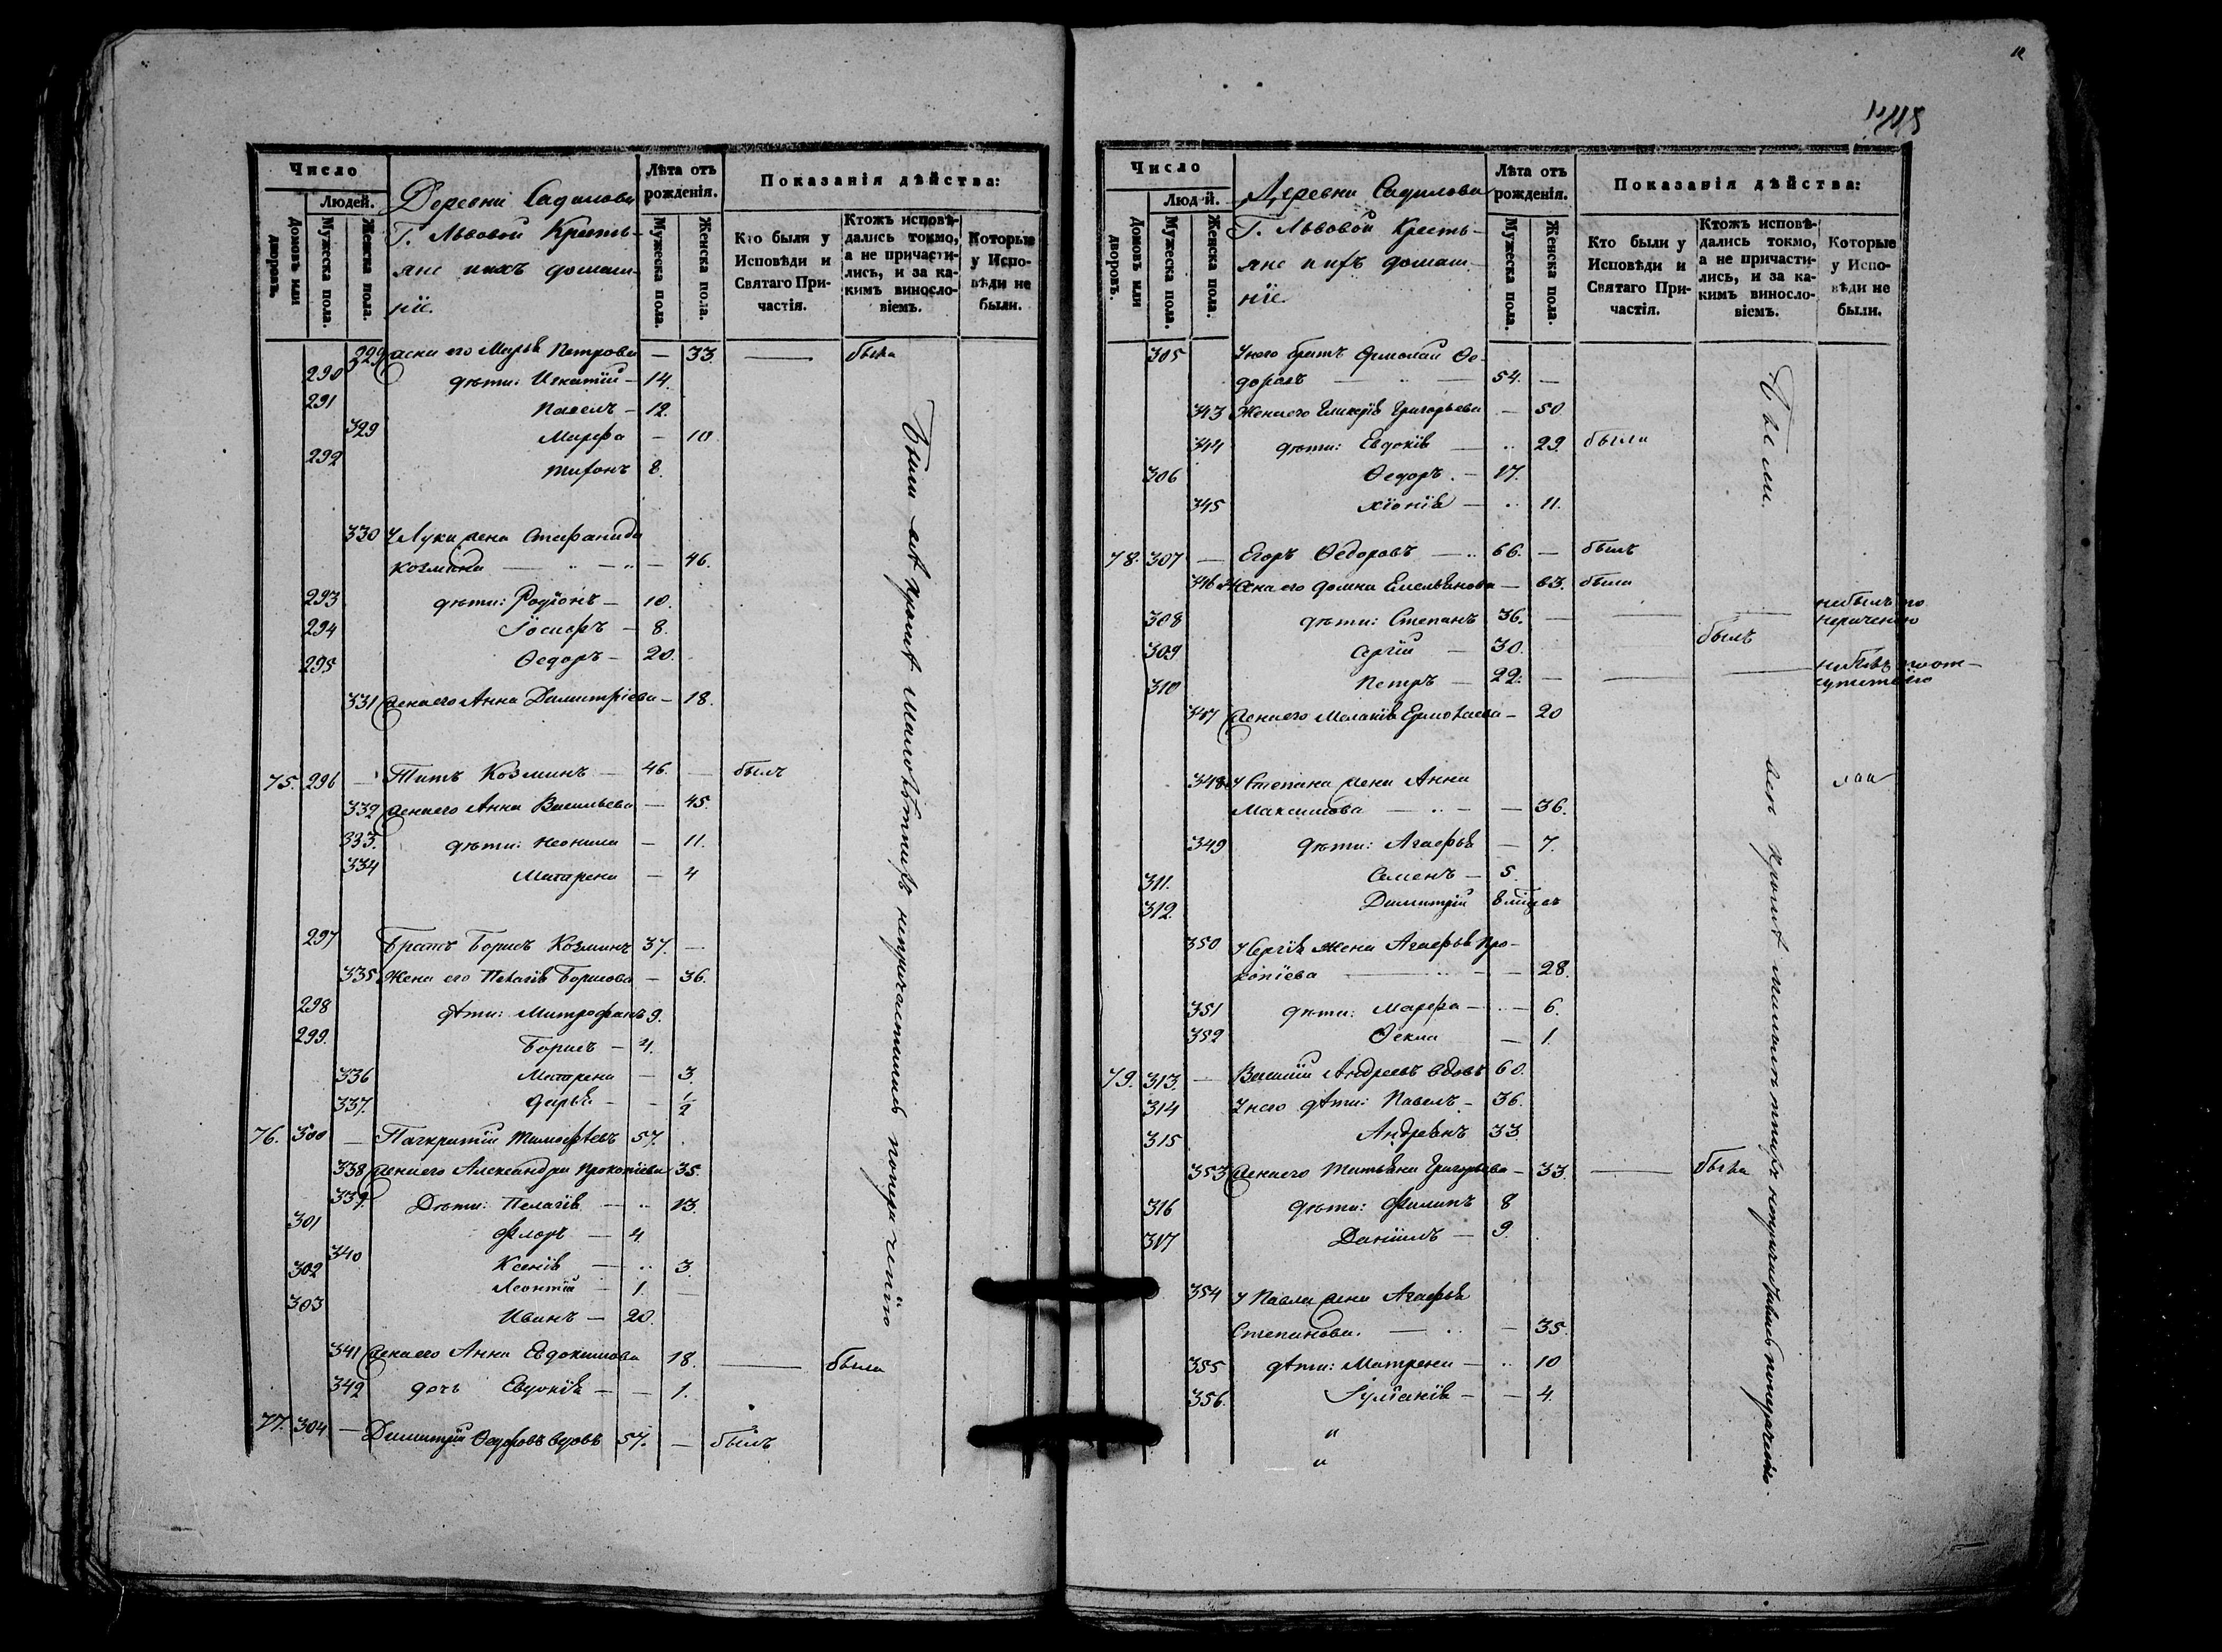 Число
Людей.
Домовъ или дворовъ.
Мужеска пола.
Женска пола.
Деревни Садилова
Г. Львовой Кресть-
яне ихъ домаш-
нiе.
Лѣта отъ рожденiя.
Мужеска пола.
Женска пола.
Показанiя дѣйства:
Кто были у Исповѣди и Святаго При-частiя.
Ктожъ исповѣ-дались токмо, а не причасти-лись, и за ка-кимъ винослo-вiемъ.
Которые у Испо-вѣди не были.
жена его Марья Петрова — 33. — была
290 дѣти: Игнатiй — 14.
291 Павелъ — 12.
329 Марфа — 10
292 Тихонъ 8.
330 У Луки жена Стефанида
Козмина — 46.
293 дѣти: Родiонъ — 10.
294 Iосифъ — 8.
295 Ѳедоръ — 20.
331 жена его Анна Димитрiева — 18.
75. 296 — Титъ Козминъ — 46. — былъ
332 жена его Анна Васильева — 45.
333. дѣти: Неонила — 11.
334 Матрена — 4
297 Братъ Борисъ Козминъ 37. —
335 Жена его Пелагiя Борисова — 36.
298 дѣти: Митрофанъ 9.
299. Борисъ — 4.
336 Матрена — 3.
337. Дарья — — 1/2
76. 300 — Панкратiй Тимофѣевъ 57.
338 жена его Александра Прокопiева 35.
339. Дѣти: Пелагiя — 13.
301 Флоръ — 4
340 Ксенiя — 3.
302 Леонтiй — 1. —
303 Иванъ — 20.
341 жена его Анна Евдокимова 18. — была
342 дочь Евдокiя — — 1.
77. 304 — Димитрiй Ѳедоровъ вдовъ 57. — былъ
Были всѣ кромѣ малолѣтнихъ непричастились по нераченiю
Число
Люд й.
Домовъ или дворовъ.
Мужеска пола.
Женска пола.
Деревни Садилова
Г. Львовой Кресть-
яне ихъ домаш-
нiе.
Лѣта отъ рожденiя.
Мужеска пола.
Женска пола.
Показанiя дѣйства:
Кто были у Исповѣди и Святаго При-частiя.
Ктожъ исповѣ-дались токмо, а не причасти-лись, и за ка-кимъ винослo-вiемъ.
Которые у Испо-вѣди не были.
305 У него братъ Ермолай Ѳе-
доровъ — 54. —
343 Жена его Гликерiя Григорьева — 50.
344 дѣти: Евдокiя — 29. была
306 Ѳедоръ. — 17.
345 Хiонiя — 11.
78. 307 — Егоръ Ѳедоровъ — 66. — былъ
346 Жена его Домна Емельянова — 63. была
308 дѣти: Степанъ 36. — небылъ по нераченiю
309 Сергiй — 30. былъ
310 Петръ — 22. —
347 жена его Меланiя Ермолаева — 20
348 У Степана жена Анна
Максимова — — 36.
349 дѣти: Агафья — 7.
311. Семенъ — 5.
312. Димитрiй
350 У Сергiя жена Агафья Про-
копiева — — 28.
351 дѣти: Марфа — — 6.
352 Ѳекла — 1.
79. 313. — Василiй Андреевъ вдовъ 60.
314 У него дѣти: Павелъ — 36.
315 Андреянъ 33.
353 жена его Татьяна Григорьева — 33. — была
316 дѣти: Филипъ 8
317 Данiилъ — 9.
354 У Павла жена Агафья
Степанова. — — 35.
355 дѣти: Матрена — 10
356. Iулiанiя — — 4.
"
"
Были.
всѣ кромѣ малолѣтнихъ непричащались по нераченiю.